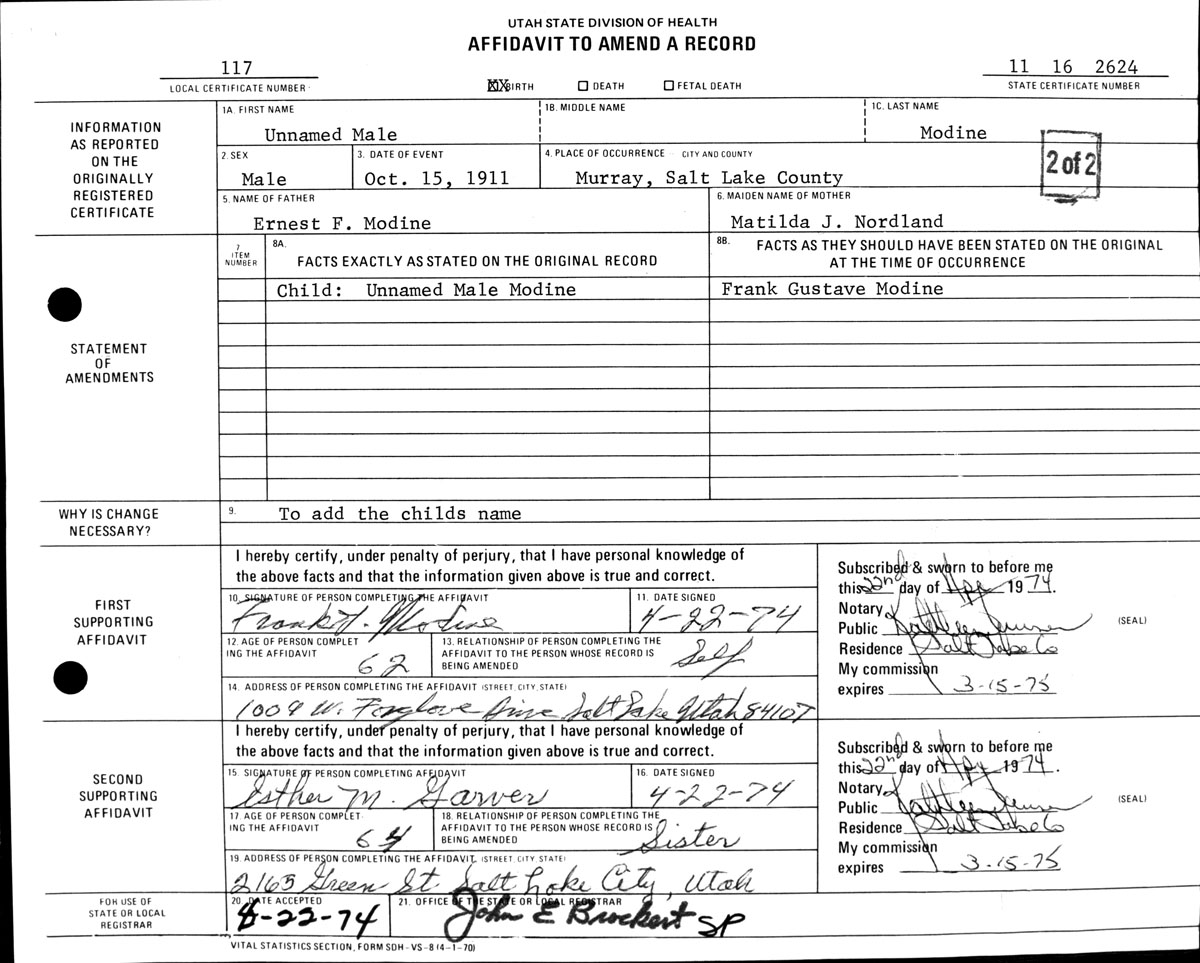 UTAH STATE DIVISION OF HEALTH
AFFIDAVIT TO AMEND A RECORD
117
LOCAL CERTIFICATE NUMBER
BIRTH DEATH FETAL DEATH
11 16 2624
STATE CERTIFICATE NUMBER
INFORMATION
AS REPORTED
ON THE
ORIGINALLY
REGISTERED
CERTIFICATE
1A. FIRST NAME 1B. MIDDLE NAME 1C. LAST NAME
Unnamed Male Modine
2. SEX 3. DATE OF EVENT 4. PLACE OF OCCURRENCE CITY AND COUNTY
Male Oct. 15, 1911 Murray, Salt Lake County
2 of 2
5. NAME OF FATHER 6. MAIDEN NAME OF MOTHER
Ernest F. Modine Matilda J. Nordland
STATEMENT
OF
AMENDMENTS
7
ITEM
NUMBER
8A.
FACTS EXACTLY AS STATED ON THE ORIGINAL RECORD
8B. FACTS AS THEY SHOULD HAVE BEEN STATED ON THE ORIGINAL
AT THE TIME OF OCCURRENCE
Child: Unnamed Male Modine Frank Gustave Modine
WHY IS CHANGE
NECESSARY?
9. To add the childs name
FIRST
SUPPORTING
AFFIDAVIT
I hereby certify, under penalty of perjury, that I have personal knowledge of
the above facts and that the information given above is true and correct.
10. SIGNATURE OF PERSON COMPLETING THE AFFIDAVIT 11. DATE SIGNED
Frank Modine 4-22-74
12. AGE OF PERSON COMPLET
ING THE AFFIDAVIT
62
13. RELATIONSHIP OF PERSON COMPLETING THE
AFFIDAVIT TO THE PERSON WHOSE RECORD IS
BEING AMENDED
Self
14. ADDRESS OF PERSON COMPLETING THE AFFIDAVIT (STREET, CITY, STATE)
1009 W. Foxglove Drive Salt Lake Utah 84107
Subscribed & sworn to before me
this 22nd day of Apr 1974.
Notary
Public
Residence Salt Lake Co
My commission
expires 3-15-75
(SEAL)
SECOND
SUPPORTING
AFFIDAVIT
I hereby certify, under penalty of perjury, that I have personal knowledge of
the above facts and that the information given above is true and correct.
15. SIGNATURE OF PERSON COMPLETING AFFIDAVIT 16. DATE SIGNED
Esther M. Garver 4-22-74
17. AGE OF PERSON COMPLET-
ING THE AFFIDAVIT
64
18. RELATIONSHIP OF PERSON COMPLETING THE
AFFIDAVIT TO THE PERSON WHOSE RECORD IS
BEING AMENDED
Sister
19. ADDRESS OF PERSON COMPLETING THE AFFIDAVIT (STREET, CITY, STATE)
2165 Green St. Salt Lake City, Utah
Subscribed & sworn to before me
this 22nd day of Apr 1974.
Notary
Public
Residence Salt Lake Co
My commission
expires 3-15-75
(SEAL)
FOR USE OF
STATE OR LOCAL
REGISTRAR
20. DATE ACCEPTED 21. OFFICE OF THE STATE OR LOCAL REGISTRAR
-22-74 John E Brockert SP
VITAL STATISTICS SECTION, FORM SDH-VS-8 (4-1-70)